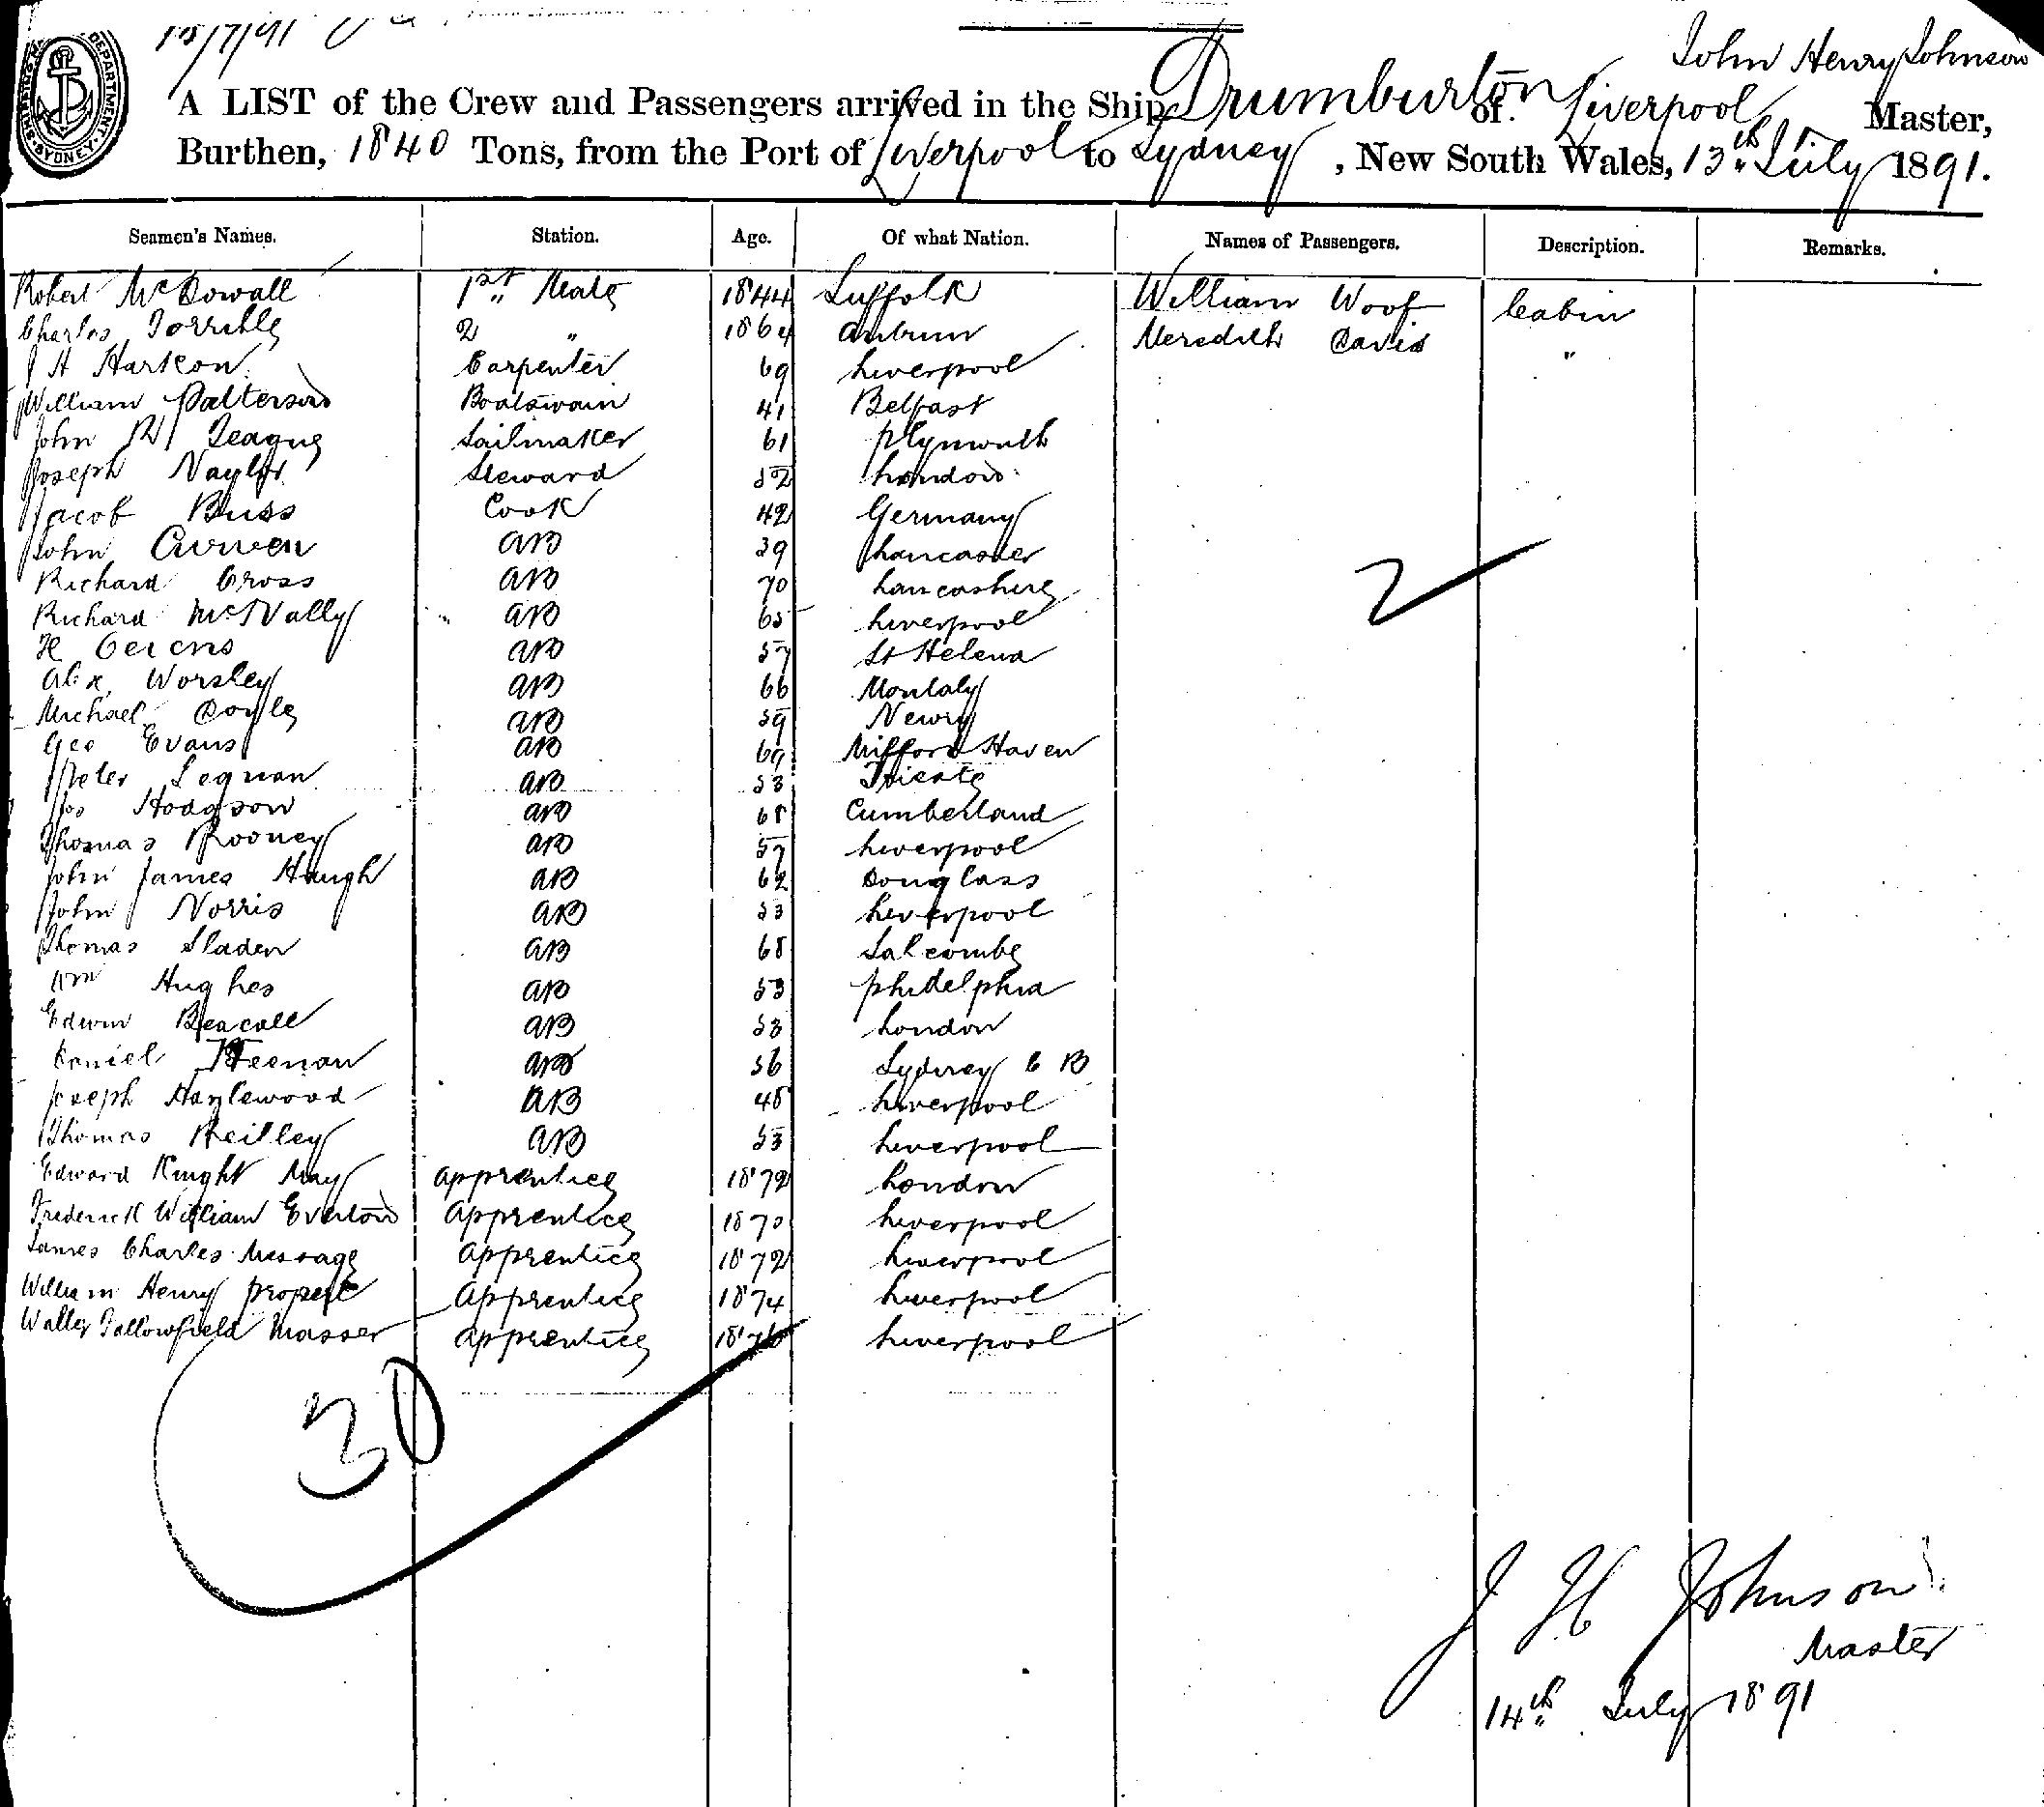 13/7/91
SHIPPING MASTER'S DEPARTMENT SYDNEY
John Henry Johnson
A LIST of the Crew and Passengers arrived in the Ship Drumburton of Liverpool Master,
Burthen, 1840 Tons, from the Port of Liverpool to Sydney, New South Wales, 13th July 1891.
Seamen's Names. Station. Age. Of what Nation. Names of Passengers. Description. Remarks.
Robert McDowall 1st Mate 1844 Suffolk William Woof Cabin
Charles 2 " 1864 Meredith David "
J H Carpenter 69 Liverpool
William Patterson Boatswain 41 Belfast
John W Teague Sailmaker 61 Plymouth
Joseph Naylor Steward 52 London
Jacob Buss Cook 42 Germany
John Curwen AB 39 Lancaster
Richard Cross AB 70 Lancashire
Richard McNally AB 65 Liverpool
H AB 57 St Helena
Alex Worsley AB 66
Michael Doyle AB 59 Newry
Geo Evans AB 69 Milford Haven
Peter AB 53 Trieste
Jos Hodgson AB 68 Cumberland
Thomas Rooney AB 57 Liverpool
John James Haugh AB 62 Douglass
John Norris AB 53 Liverpool
Thomas Sladen AB 68 Salcombe
Wm Hughes AB 53 Phidelphia
Edwin Beacall AB 53 London
Daniel Keenan AB 56 Sydney C B
Joseph Hazlewood AB 48 Liverpool
Thomas Reilley AB 53 Liverpool
Edward Knight May Apprentice 1872 London
Frederick William Everton Apprentice 1870 Liverpool
James Charles Message Apprentice 1872 Liverpool
William Henry Propert Apprentice 1874 Liverpool
Walter Fallowfield Masser Apprentice Liverpool
2
30
J H Johnson
Master
14th July 1891